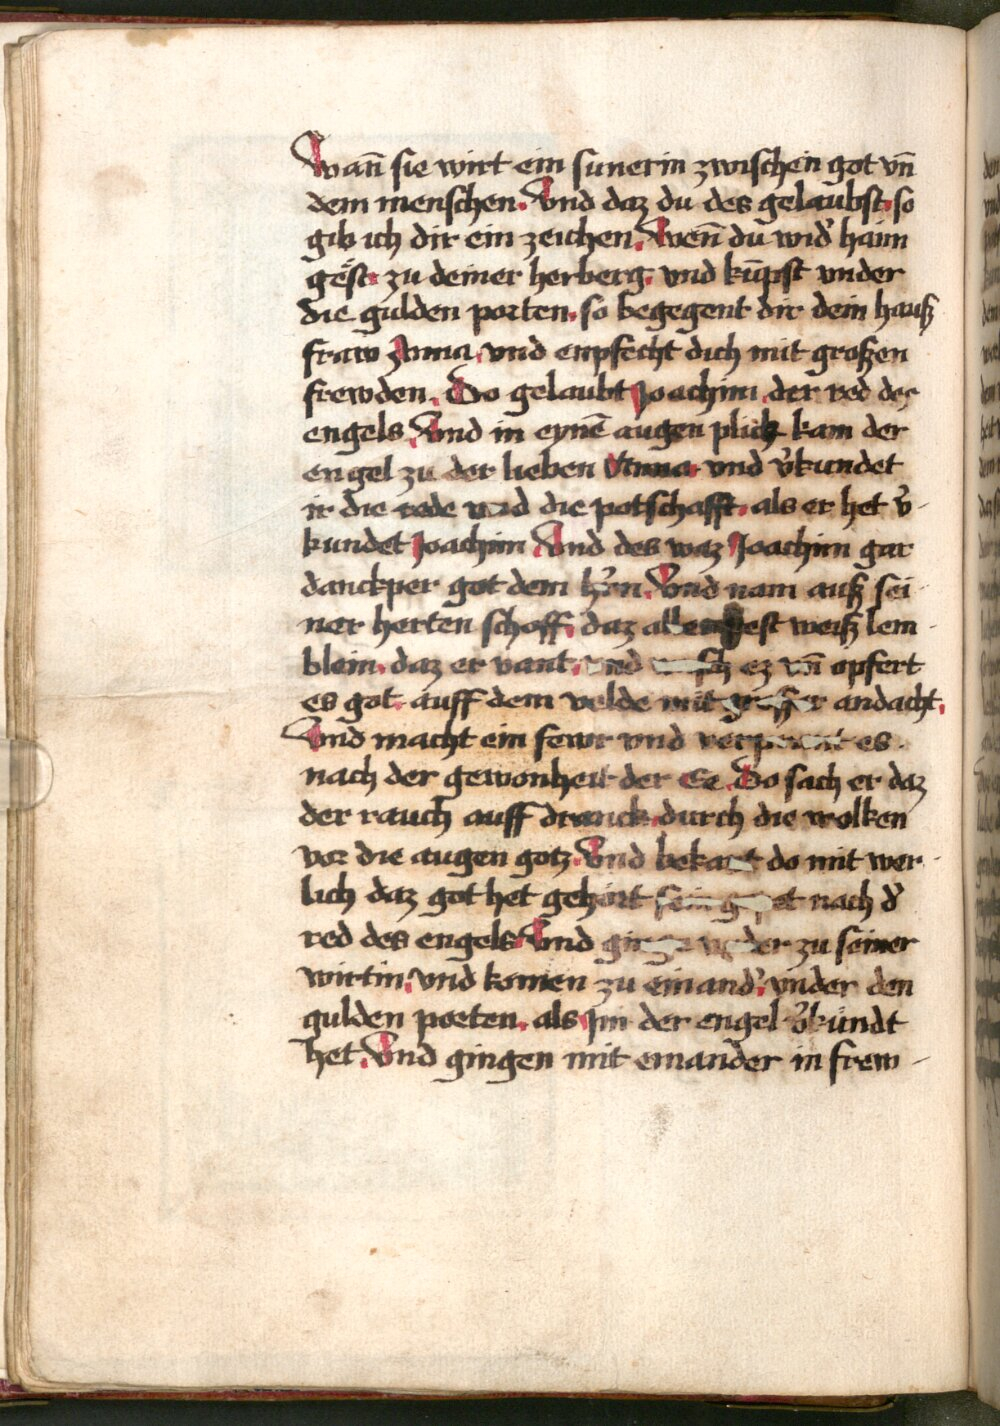 Wañ sie wirt ein sunerin zwischen got vñ
dem menschen. Vnd daz du des gelaubst. so
gib ich dir ein zeichen. Wen̄ du wid' haim
gest. zu deiner herberg. vnd kūpst vnder
die gulden porten. so begegent dir dein hauß
fraw Anna. vnd enpfecht dich mit großen
frewden. Do gelaubt Joachim. der red des
engels. Vnd in eynē augen plick kam der
engel zu der lieben Anna. vnd v'kundet
ir die rede vnd die potschafft. als er het v'-
kundet Joachim. Vnd des waz Joachim gar
danckper got dem h'rn. Vnd nam auß sei-
ner herten schoff. daz weiß lem-
blein. daz er vant. vnd ez vñ opfert
es got. auff dem velde mit grosser andacht.
Vnd macht ein fewr vnd es
nach der gewonheit der Ee. Do sach er daz
der rauch auff dranck. durch die wolken
vor die augen gotz. Vnd bekant do mit wer-
lich daz got het gehört sein nach d'
red des engels. Vnd zu seiner
wirtin. vnd komen zu einand'. vnder den
gulden poeten. als Jm der engel v'kündt
het. Vnd gingen mit einander in frew-